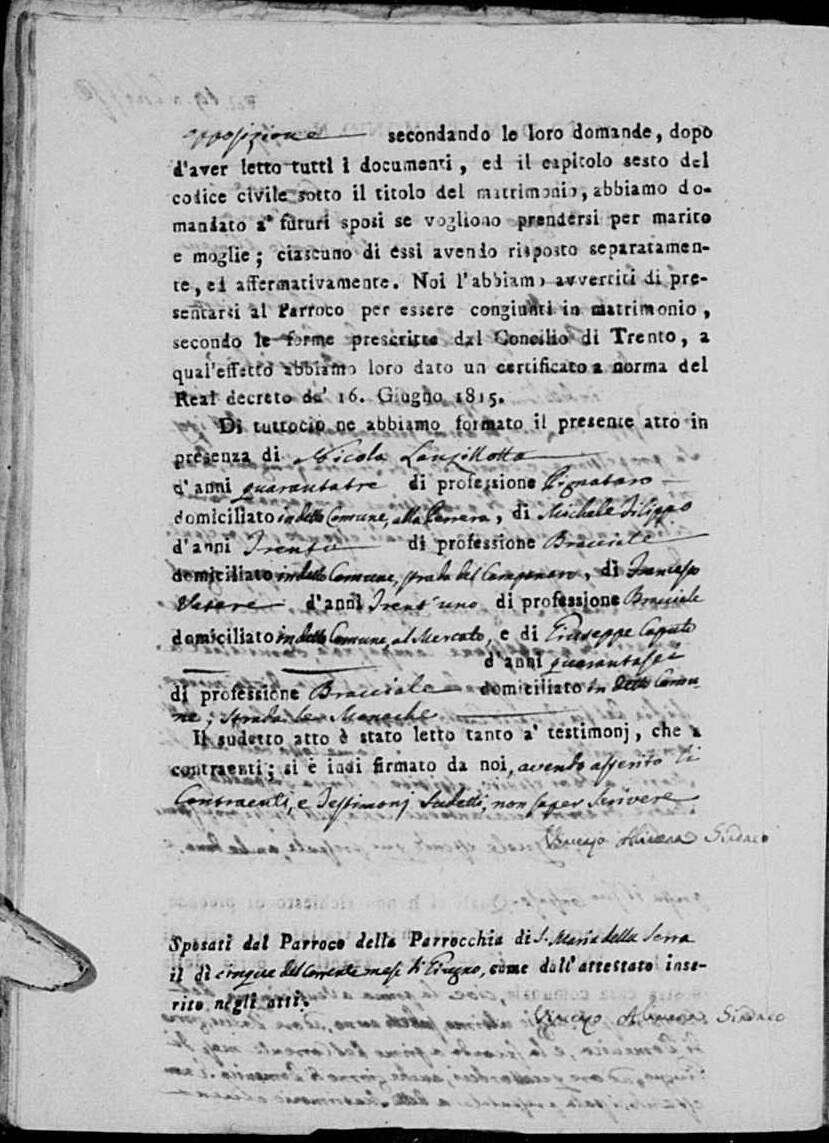 opposizione secondando le loro domande, dopo
d'aver letto tutti i documenti, ed il capitolo sesto del
codice civile sotto il titolo del matrimonio, abbiamo do-
mandato a' futuri sposi se vogliono prendersi per marito
e moglie; ciascuno di essi avendo risposto separatamen-
te, ed affermativamente. Noi l'abbiamo avvertiti di pre-
sentarsi al Parroco per essere congiunti in matrimonio,
secondo le forme prescritte dal Concilio di Trento, a
qual'effetto abbiamo loro dato un certificato a norma del
Real decreto de' 16. Giugno 1815.
Di tuttociò ne abbiamo formato il presente atto in
presenza di Nicola Lanzillotta
d'anni quarantatre di professione Pignataro
domiciliato in detto Comune, alla Carrera, di Michele Filippo
d'anni Trenta di professione Bracciale
domiciliato in detto Comune, strada del Campanaro, di Francesco
d'anni Trent'uno di professione Bracciale
domiciliato in detto Comune, al Mercato, e di Giuseppe Caputo
d'anni quarantasei
di professione Bracciale domiciliato in detto Comu-
ne, strada le Monache
Il sudetto atto è stato letto tanto a' testimonj, che a
contraenti; si è indi firmato da noi, avendo asserito li
Contraenti, e Testimonj sudetti, non saper scrivere
Sindaco
Sposati dal Parroco della Parrocchia di S. Maria della Serra
il dì cinque del corrente mese di Giugno, come dall'attestato inse-
rito negli atti.
Sindaco